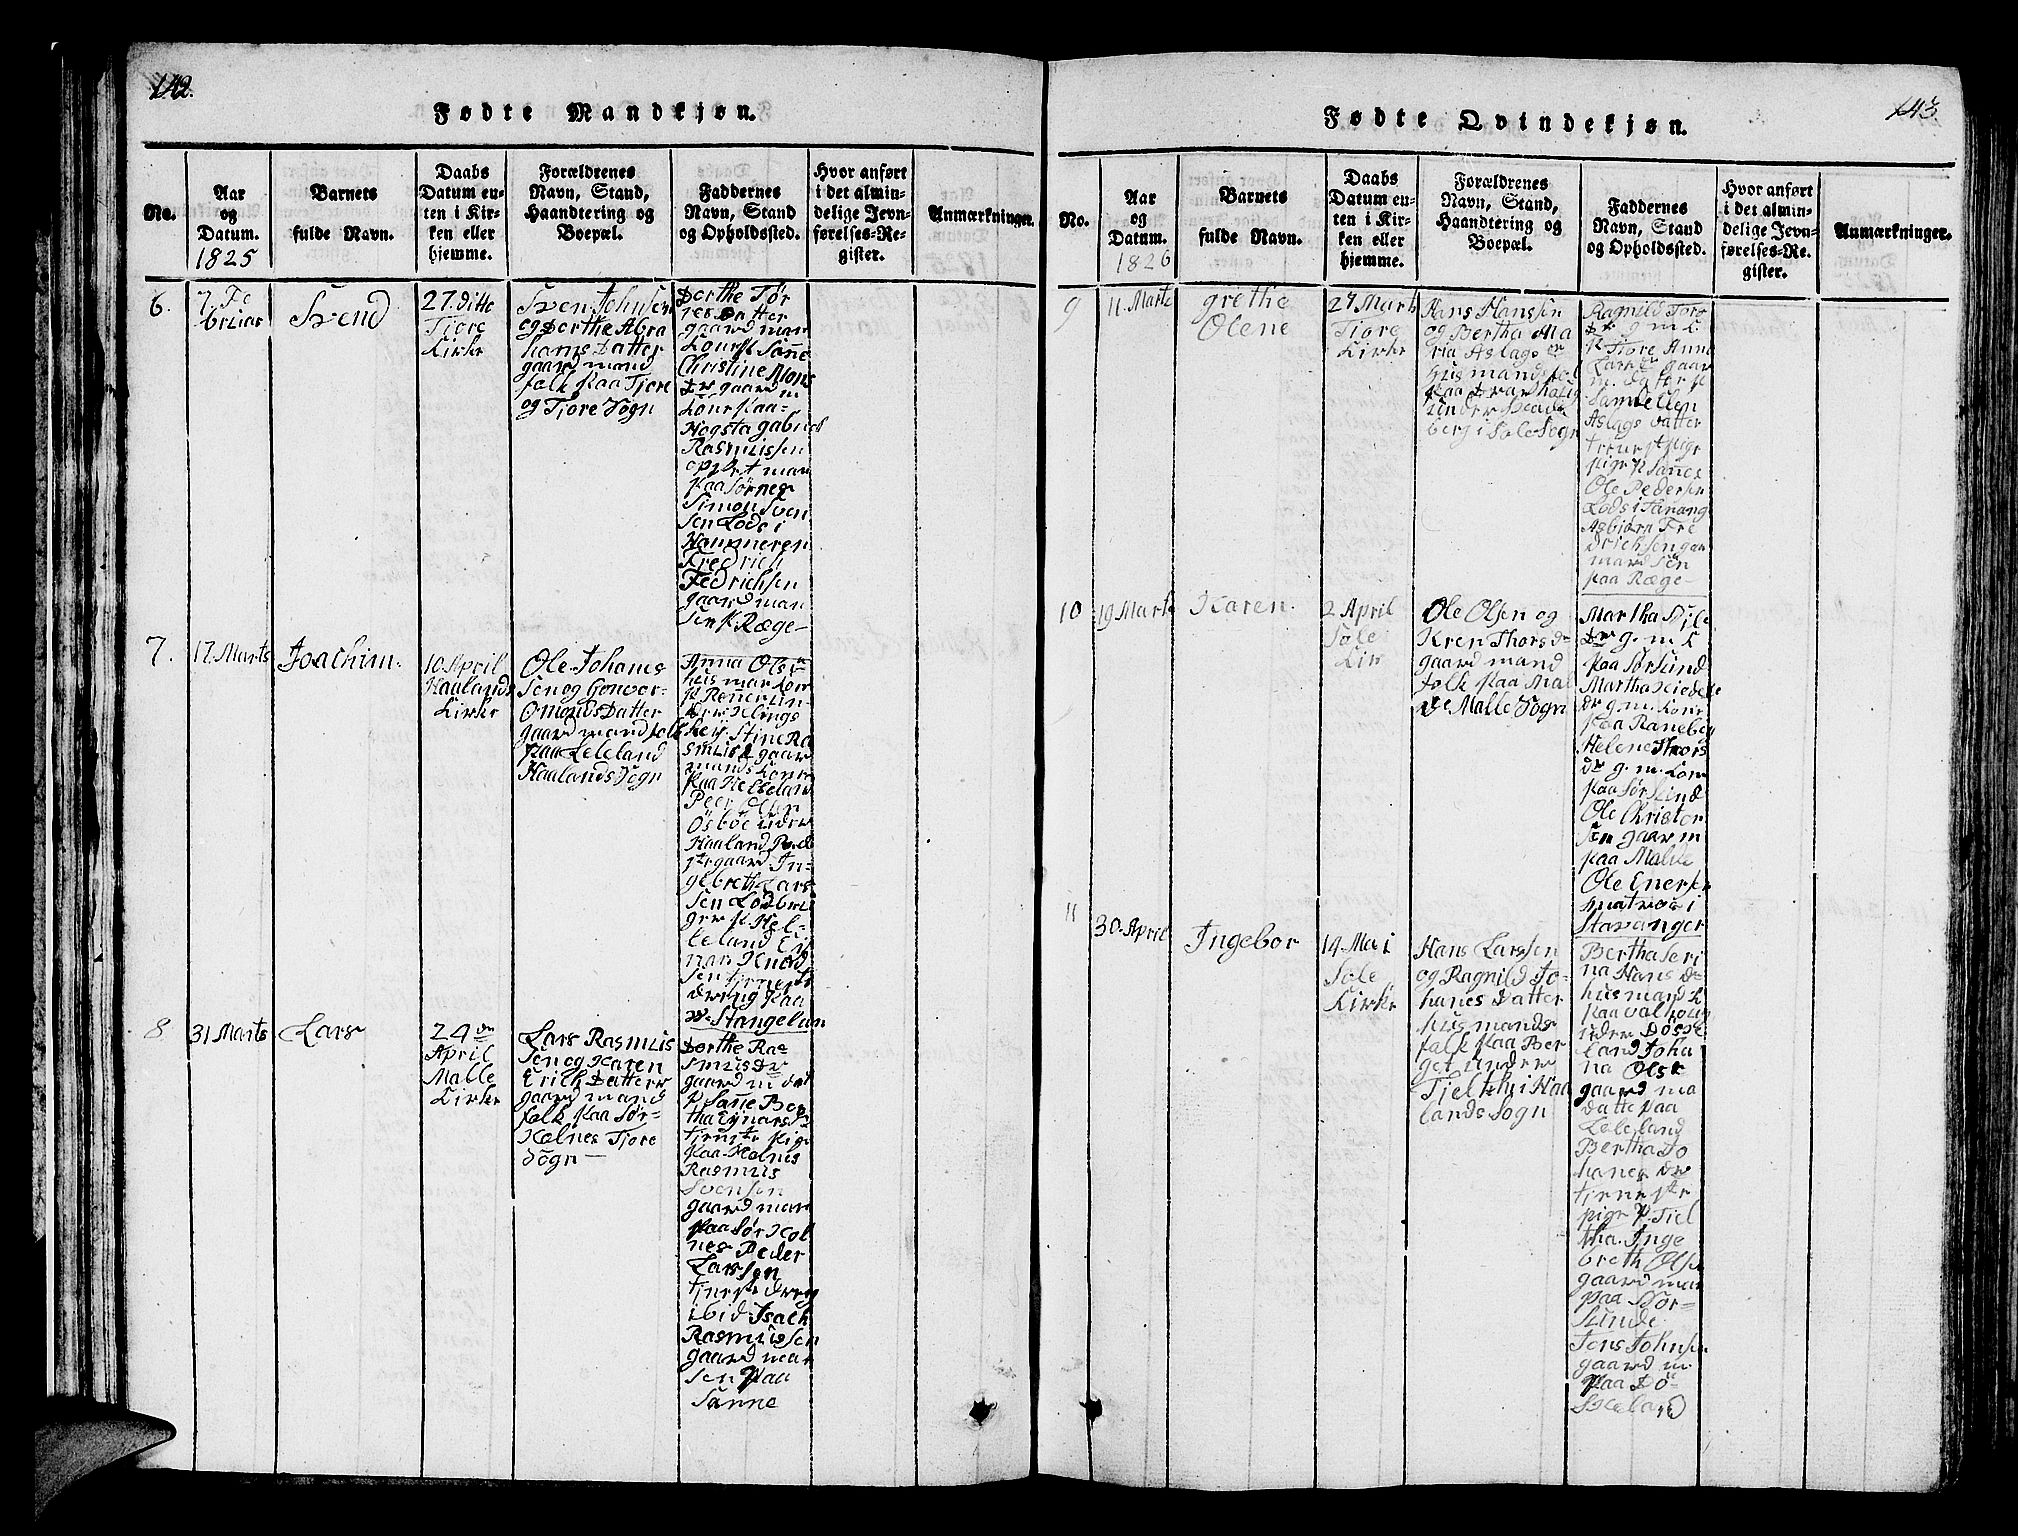 142.
Fødte Mandkjøn.
No.
Aar
og
Datum.
1825
Barnets
fulde Navn.
Daabs
Datum en-
ten i Kir-
ken eller
hjemme.
Forældrenes
Navn, Stand,
Haandtering og
Boepæl.
Faddernes
Navn, Stand
og Opholdssted.
Hvor anført
i det almin-
delige Jevn-
førelses-Re-
gister.
Anmærkninger.
6.
7 Fe
bruar
Svend
27 ditto
Tjore
Kirke
Sven Johnsen
og Dorthe Abra
hams Datter
gaard mand
folk paa Tjore
og Tjore Sogn
Dorthe Tør
res Datter
gaard man
Kone p Sanne
Christine Mons
Dr gaard m
Kone paa
Hogsta gabriel
Rasmussen
man
paa Sørnes
Simon Sven
sen Lods i
Hammeren
Fredrich
Fedrichsen
gaard man
sen p. Ræge-
7.
17. Marts
Joachim.
10 April
Haalands
Kirke
Ole Johanes
sen og Gonvor
Omonds Datter
gaard mand folk
paa Leleland
Haalands Sogn
Anna Ols
hus man kone
p
Stine Ra
smus gaar
mands kone
paa Helleland
Peer Olsen
Osböe under
Haaland
gaard In-
gebreth Lars
sen
p Hel-
leland
nar Knud
sen
dreng paa
Stangelan
8
31 Marts
Lars
24 de
April
Malle
Kirke
Lars Rasmus
sen og Karen
Erich Datter
gaard mand
folk paa Sør-
Kolnes Tjore
Sogn
Dorthe Ra
smus Dr
gaard m dat
p Sane Ber
tha Eynars D
tjeneste pige
paa Kolnes
Rasmus
Svensen
gaard man
paa Sør Kol
nes Peder
Larssen
tjeneste dreng
ibid. Isach
Rasmussen
gaard man
sen paa
Sanne
143
Fødte Qvindekjøn.
No.
Aar
og
Datum.
1826
Barnets
fulde Navn.
Daabs
Datum en-
ten i Kir-
ken eller
hjemme.
Forældrenes
Navn, Stand,
Haandtering og
Boepæl.
Faddernes
Navn, Stand
og Opholdssted.
Hvor anført
i det almin-
delige Jevn-
førelses-Re-
gister.
Anmærkninger.
9
11. Marts
grethe
Olene
27 Marts
Tjore
Kirke
Hans Hanssen
og Bertha Ma
ria Aslags Dr
hus mands fol
paa
under
berg i Sole Sogn
Ragnild Tore
Dr g m K
p Tjore Anne
Lars gaar
m. datter p
Ellen
Aslags Datter
pige p Sanes
Ole Pedersen
Lods i Tanang
Asbjørn Fre
drichsen gaar
mand sen
paa Ræge-
10
19 Marts
Karen.
2 April
Sole
Kir
Ole Olsen og
Kren Thors Dr
gaard mand
folk paa Mal
le Malle Sogn
Martha
Dr g. m. K
paa Sør Sunde
Martha
Dr g. m. kone
paa Raneberg
Helene Thors
Dr g. m. kon
paa Sør Sunde
Ole Christof
sen gaar m
paa Malle
Ole Enersen
matros i
Stavanger
11
30. April
Ingebor
14. Mai
Sole
Kirke
Hans Larssen
og Ragnild Jo-
hanes Datter
hus mands
folk paa Ber
get under
Tjeltha i Haa
lands Sogn
Bertha Seri
na Hans Dr
hus mand K
paa valhoug
under
land Joha
na Ols
gaard ma
datte paa
Leleland
Bertha Jo
hanes Dr
tjeneste
pige p Tjel
tha. Inge
breth Olsen
gaard man
paa Sør-
Sunde
Jens Johnsen
gaard m
paa